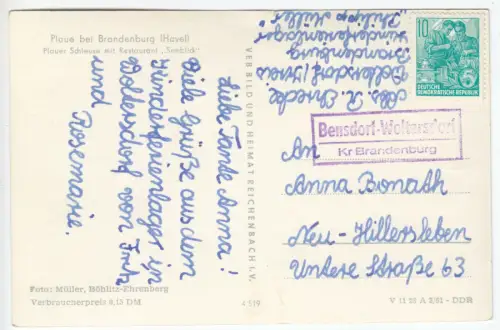 Plaue bei Brandenburg (Havel)
Plauer Schleuse mit Restaurant „Seeblick"
Liebe Tante Anna!
Viele Grüße aus dem
Kinderferienlager in
Woltersdorf von Fritz
und Rosemarie.
Foto: Müller, Böhlitz-Ehrenberg
Verbraucherpreis 0,15 DM
VEB BILD UND HEIMAT REICHENBACH I. V.
Abs. R.
Woltersdorf/Kreis
Brandenburg
Kinderferienlager
„Philipp Müller"
10
DEUTSCHE
DEMOKRATISCHE REPUBLIK
Bensdorf-Woltersdorf
Kr Brandenburg
An
Anna Bonath
Neu-Hillersleben
Untere Straße 63
V 11 28 A 2/62 - DDR